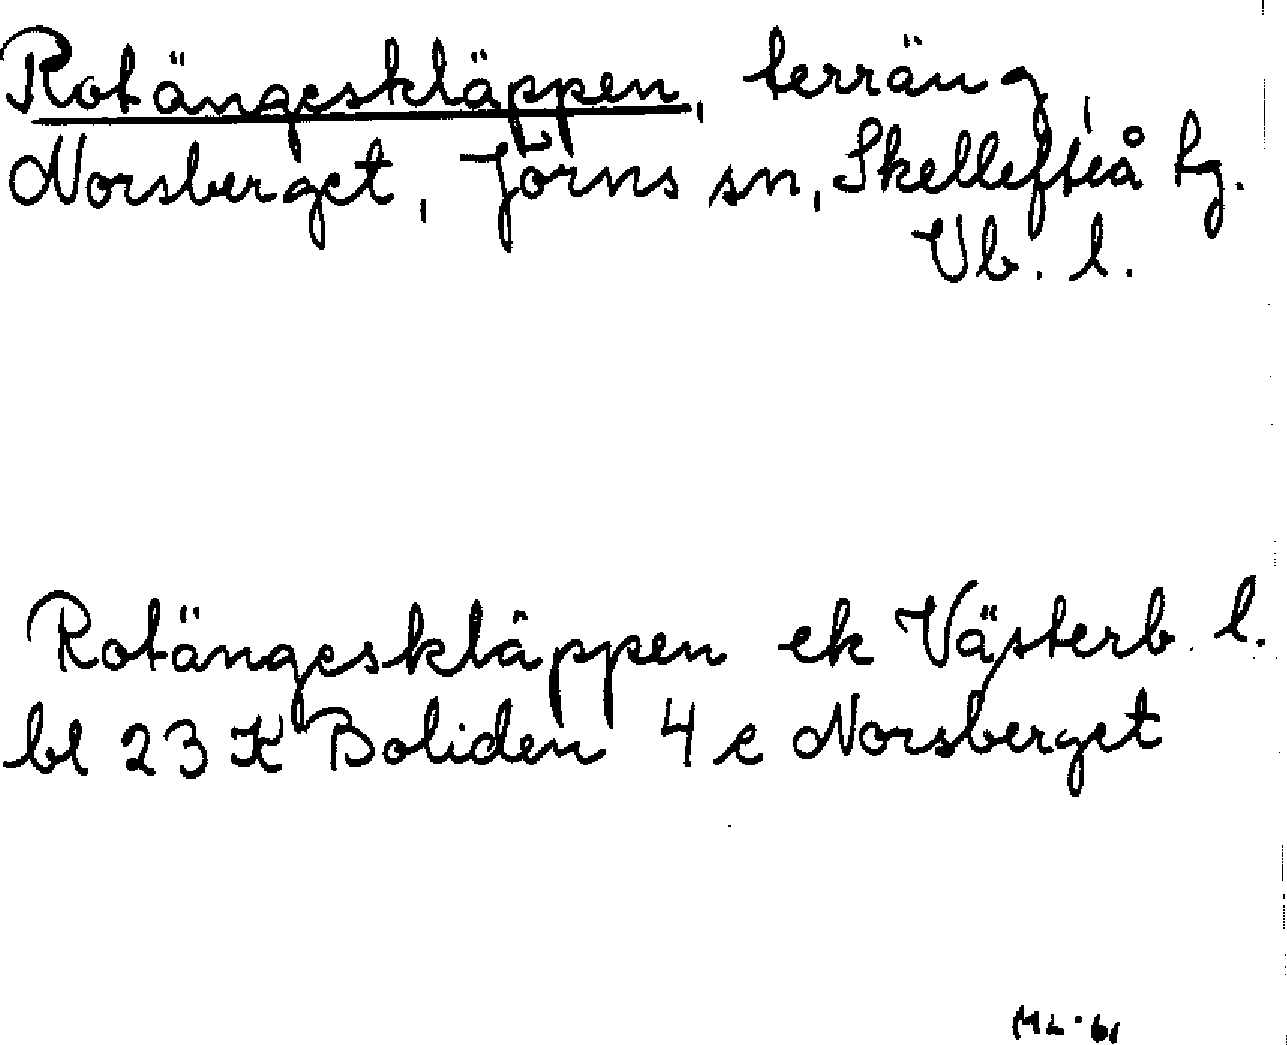 Rotängeskläppen, terräng,
Norsberget, Jörns sn, Skellefteå tg.
Vb. l.
Rotängeskläppen ek Västerb. l.
bl 23 K Boliden 4 e Norsberget
ML-61